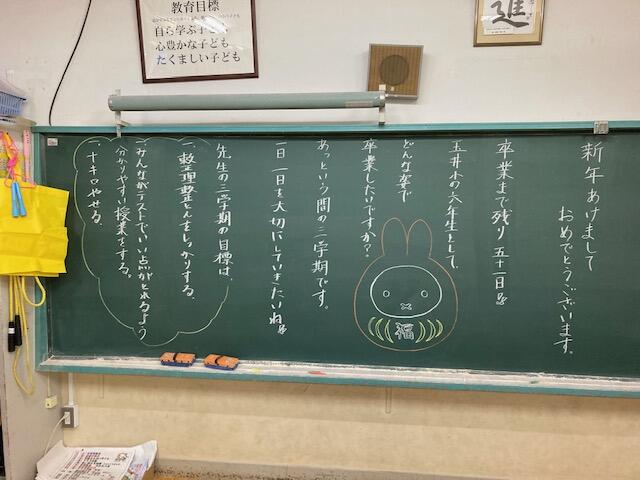 教育目標
自ら学ぶ子ども
心豊かな子ども
たくましい子ども
進
新年あけまして
おめでとうございます。
卒業まで残り五十一日!!
玉井小の六年生として、
どんな姿で
卒業したいですか?
あっという間の三学期です。
一日一日を大切にしていきたいね!!
福
先生の三学期の目標は、
一、整理整とんをしっかりする。
一、みんながテストでいい点がとれるよう
分かりやすい授業をする。
一、十キロやせる。